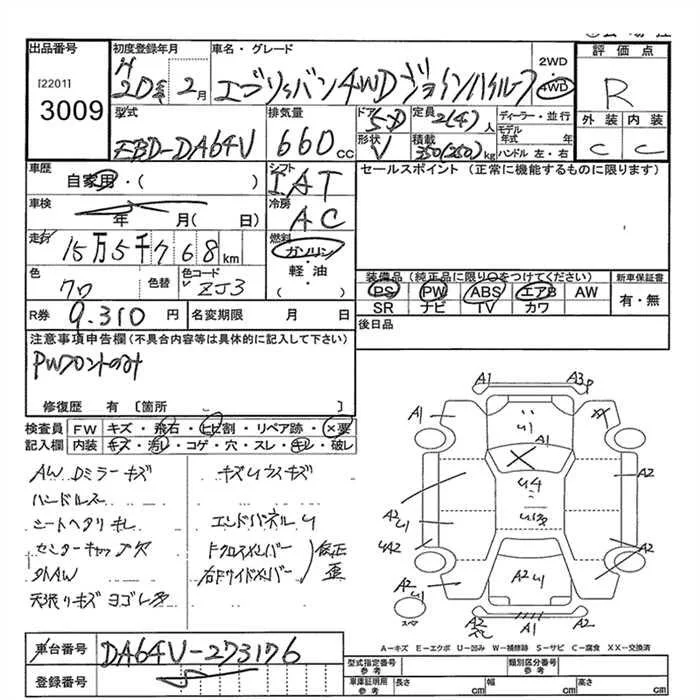 出品番号
[2201]
3009
初度登録年月
H
20年 2月
車名・グレード
エブリィバン 4WD ジョインハイルーフ
2WD
・
4WD
評価点
R
外装 内装
C C
型式
EBD-DA64V
排気量
660 cc
ドア 5D
形状 V
定員 2(4) 人
積載 350(250) kg
ディーラー・並行
モデル年式 年
ハンドル 左・右
車歴
自家用・( )
車検
年 月( 日)
走行
15万5千768 km
色
色替
色コード
ZJ3
シフト
IAT
冷房
AC
燃料
ガソリン
軽油
( )
セールスポイント (正常に機能するものに限ります)
装備品 (純正品に限り○をつけてください)
PS PW ABS エアB AW
SR ナビ TV カワ
新車保証書
有・無
R券 9.310 円
名変期限 月 日
後日品
注意事項申告欄(不具合内容等は具体的に記入して下さい)
PWフロントのみ
修復歴 有 [箇所 ]
検査員記入欄
FW キズ・飛石・ヒビ割・リペア跡・×要
内装 キズ・汚レ・コゲ・穴・スレ・キレ・破レ
AW Dミラーキズ
ハンドルスレ
シートヘタリキレ
センターキャップ欠
天張りキズ ヨゴレ多
エンドパネルU
Fクロスメンバー
右Fサイドメンバー
修正歪
A1 A3
A1 XX
U1
A1
X
U4
A2 U1
A2
UA2
A2
A2 U1
A2U1
A2
スペア
A2
A1
A1
車台番号
DA64V-273176
登録番号
A-キズ E-エクボ U-凹み W-補修跡 S-サビ C-腐食 XX-交換済
型式指定番号
参考
類別区分番号
参考
車庫証明用
参考
長さ cm
幅 cm
高さ cm